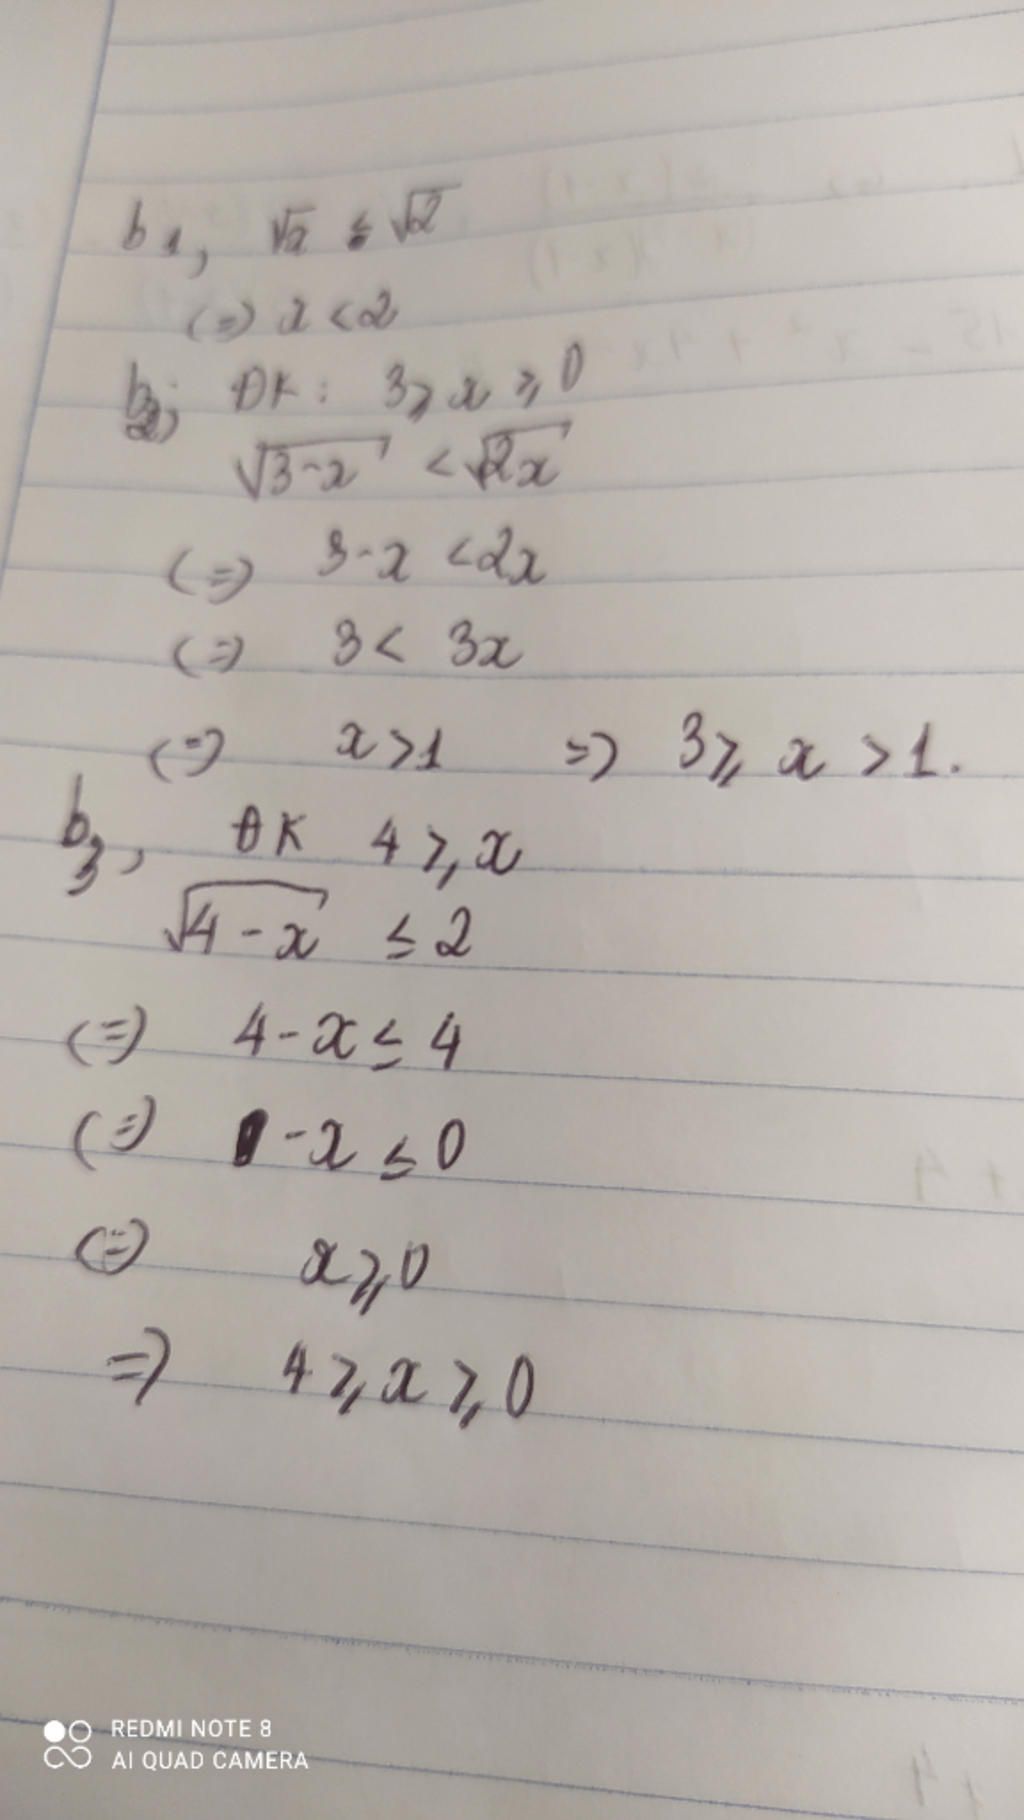 b1, √x ≤ √2
(=) x < 2
b2; ĐK: 3 ⩾ x ⩾ 0
√3-x < √2x
(=) 3-x < 2x
(=) 3 < 3x
(=) x > 1 => 3 ⩾ x > 1.
b3, ĐK 4 ⩾ x
√4-x ≤ 2
(=) 4-x ≤ 4
(=) -x ≤ 0
(=) x ⩾ 0
=) 4 ⩾ x ⩾ 0
REDMI NOTE 8
AI QUAD CAMERA